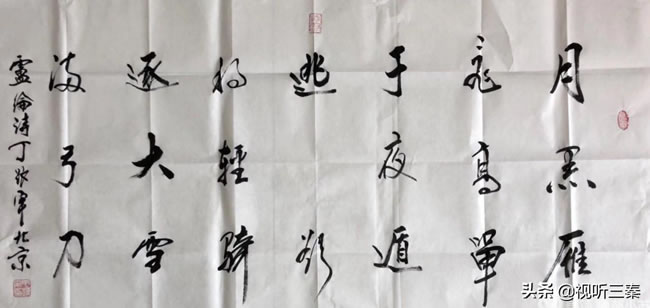 月黑雁
飛高單
于夜遁
逃欲
將輕騎
逐大雪
满弓刀
盧倫诗 丁軍北京
头条 @视听三秦